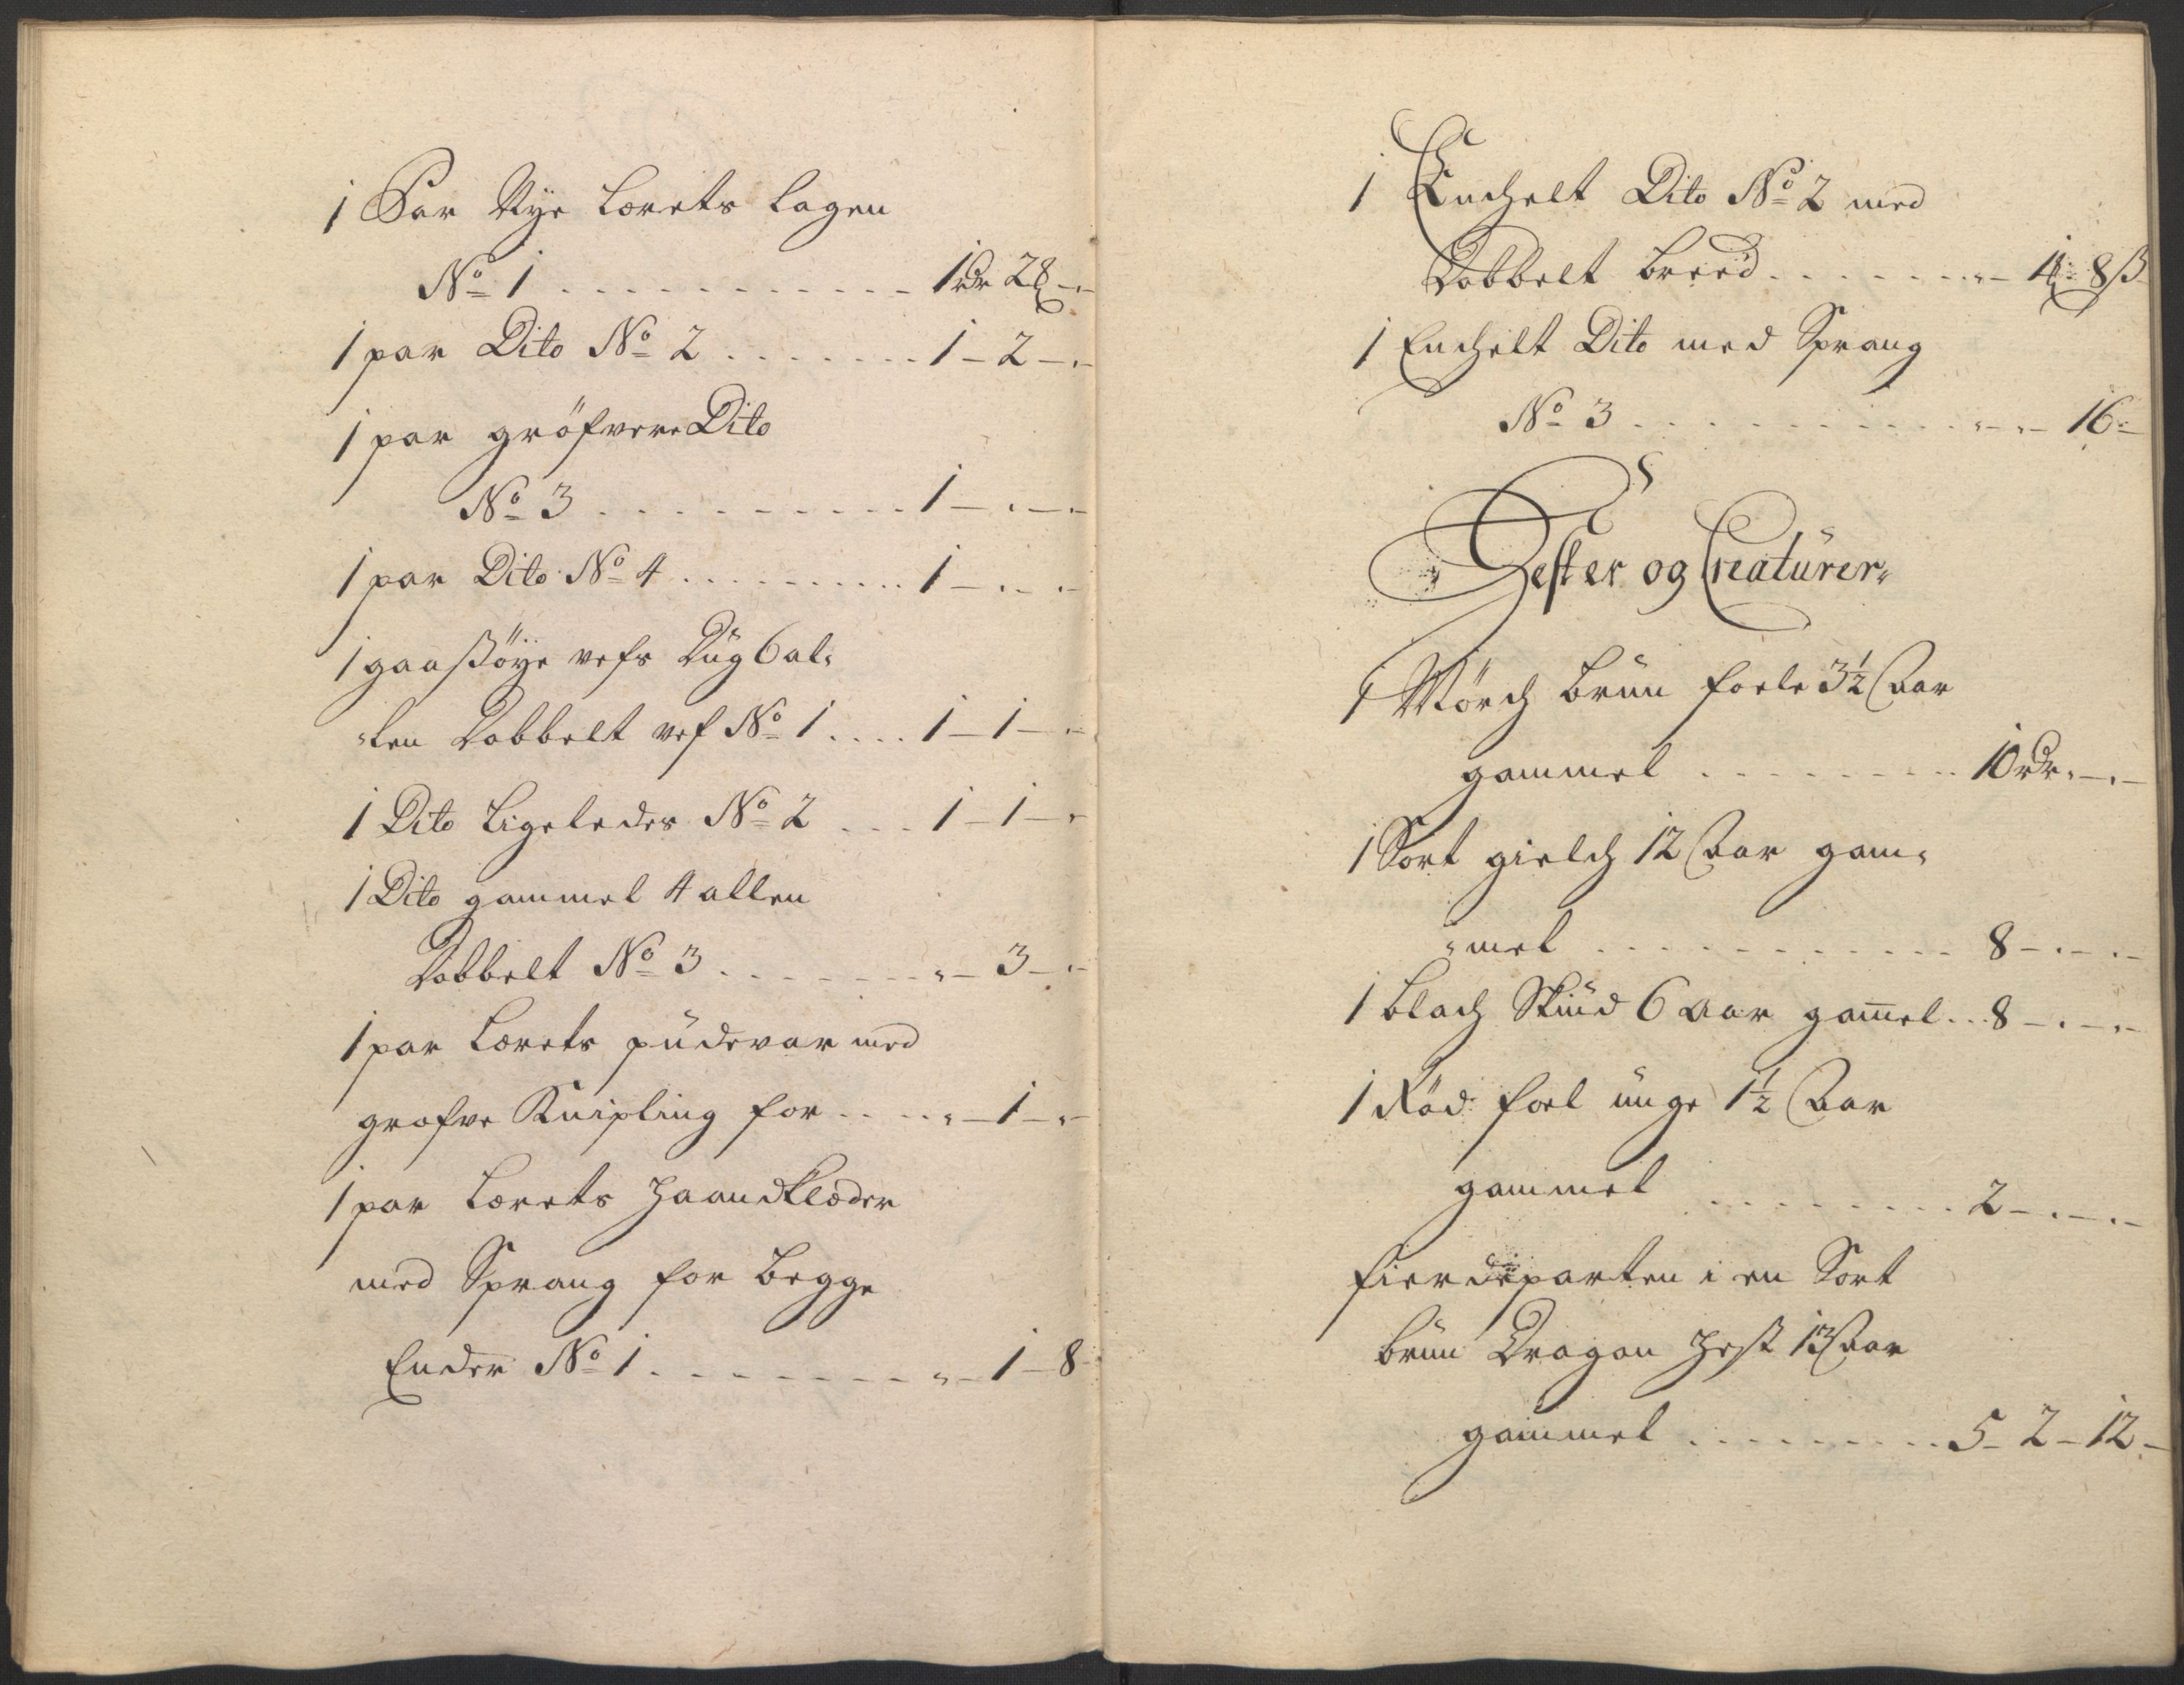 1 Par Nye Lærets Lagen
No 1 . . . . . . . . . . . . 1 rdr 2 ß - "
1 par Dito No 2 . . . . . . . 1 - 2 - "
1 par gröfvere Dito
No 3 . . . . . . . . . . 1 - " - "
1 par Dito No 4 . . . . . . . . . 1 - " - "
1 gaasöye vefs Dug 6 al=
=len Dobbelt vef No 1 . . . . 1 - 1 - "
1 Dito Ligeledes No 2 . . . 1 - 1 - "
1 Dito gammel 4 allen
Dobbelt No 3 . . . . . . . . " - 3 - "
1 par Lærets pudevar med
grofve Knipling for . . . . " - 1 - "
1 par Lærets Haandklæder
med Sprang for begge
Ender No 1 . . . . . . . . . " - 1 - 8
1 Enchelt Dito No 2 med
Dobbelt breed . . . . . . . " - 1 - 8 ß
1 Enchelt Dito med Sprang
No 3 . . . . . . . . . . . " - " - 16 -
Hester og Creaturer
1 Mörch brun foele 3½ Aar
gammel . . . . . . . . . 10 rdr " - " -
1 Sort gielch 12 Aar gam=
=mel . . . . . . . . . . . . . 8 - " - " -
1 blach Skiud 6 Aar gam̅el . . 8 - " - " -
1 Röd foel unge 1½ Aar
gammel . . . . . . . . . 2 - " - " -
fierdeparten i en Sort
brun Dragon Hest 13 Aar
gammel . . . . . . . . . . 5 - 2 - 12 -